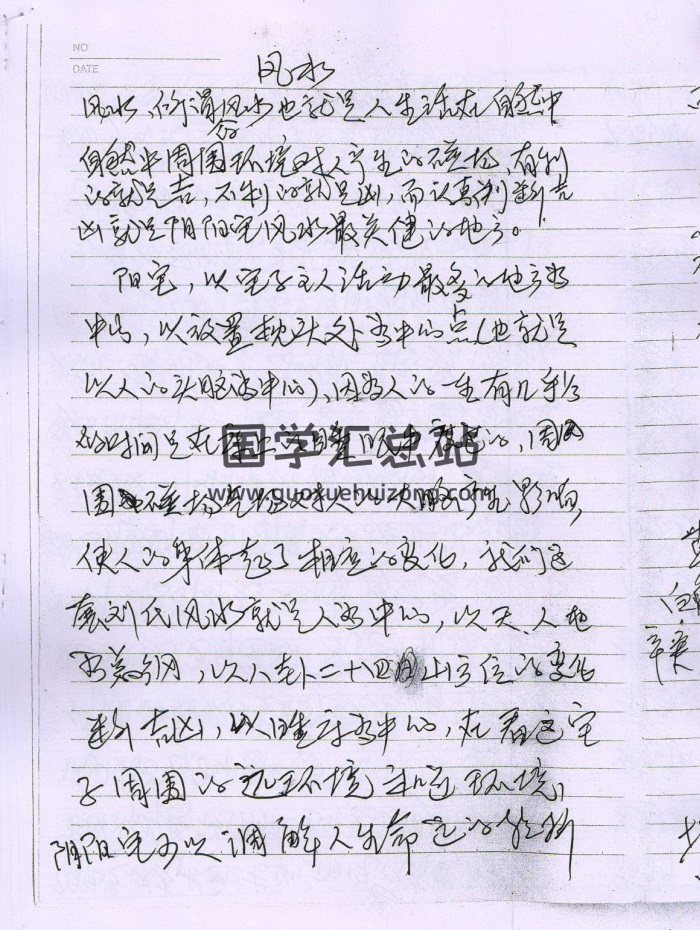 NO
DATE
风水
风水,所谓风水也就是人生活在自然中
自然中周围环境对人产生的磁场,有利
的就是吉,不利的就是凶,而认真判断吉
凶就是阴阳宅风水最关健的地方。
阳宅,以宅子主人活动最多的地方为
中心,以放置枕头处为中心点(也就是
以人的头脑为中心),因为人的一生有几乎
的时间是在床上
国学汇总站
www.guoxuehuizong.com
围 磁场 对人的大脑产生影响,
使人的身体起了相应的变化,我们这
套刘氏风水就是人为中心,以天、人、地
为 纲,以八卦二十四山方位的变化
断吉凶,以 为中心,在看这宅
子周围的远环境和近环境,
阴阳宅可以调解人生命运的